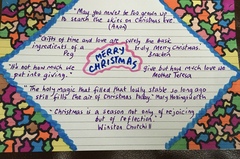 "May you never be too grown up
to search the skies on Christmas Eve.
Gifts of time and love are surely the basic
ingredients of a truly merry Christmas.
Peg Bracken
MERRY
CHRISTMAS
"It's not how much we give but how much love we
put into giving."
Mother Teresa
"The holy magic that filled that lowly stable so long ago
still fills the air of Christmas today."
"Christmas is a season not only of rejoicing
but of reflection."
Winston Churchill